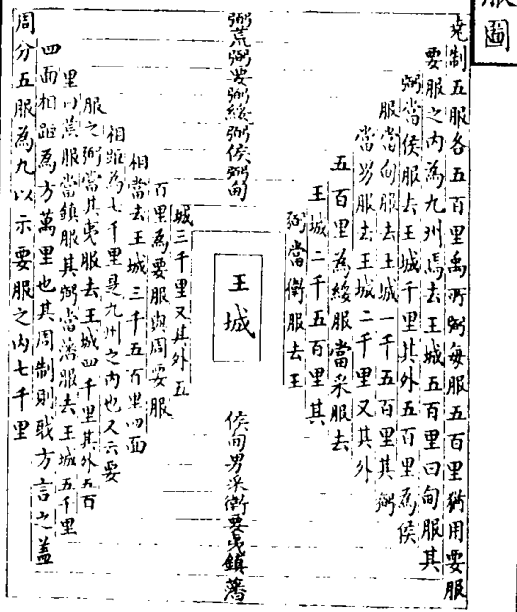 服圖
堯制五服各五百里禹所弼每服五百里猶用要服
要服之内為九州焉去王城五百里曰甸服其
弼當侯服去王城千里其外五百里為侯
服當甸服去王城一千五百里其弼
當男服去王城二千里又其外
五百里為綏服當采服去
王城二千五百里其
弼當衛服去王
弼荒弼要弼綏弼侯弼甸
王城
侯甸男采衛要夷鎮藩
城三千里又其外五
百里為要服與周要服
相當去王城三千五百里四面
相距為七千里是九州之内也又云要
服之弼當其夷服去王城四千里其外五百
里曰荒服當鎮服其弼當藩服去王城五千里
四面相距為方萬里也其周制則職方言之蓋
周分五服為九以示要服之内七千里